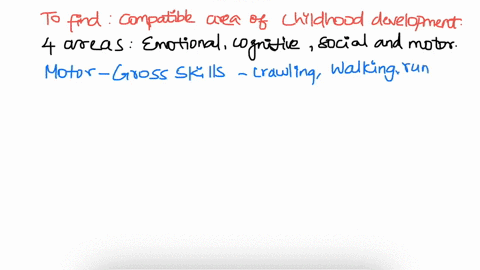 To find : Compatible area of childhood development.
4 areas : Emotional, cognitive, social and motor.
Motor - Gross skills - crawling, Walking, run